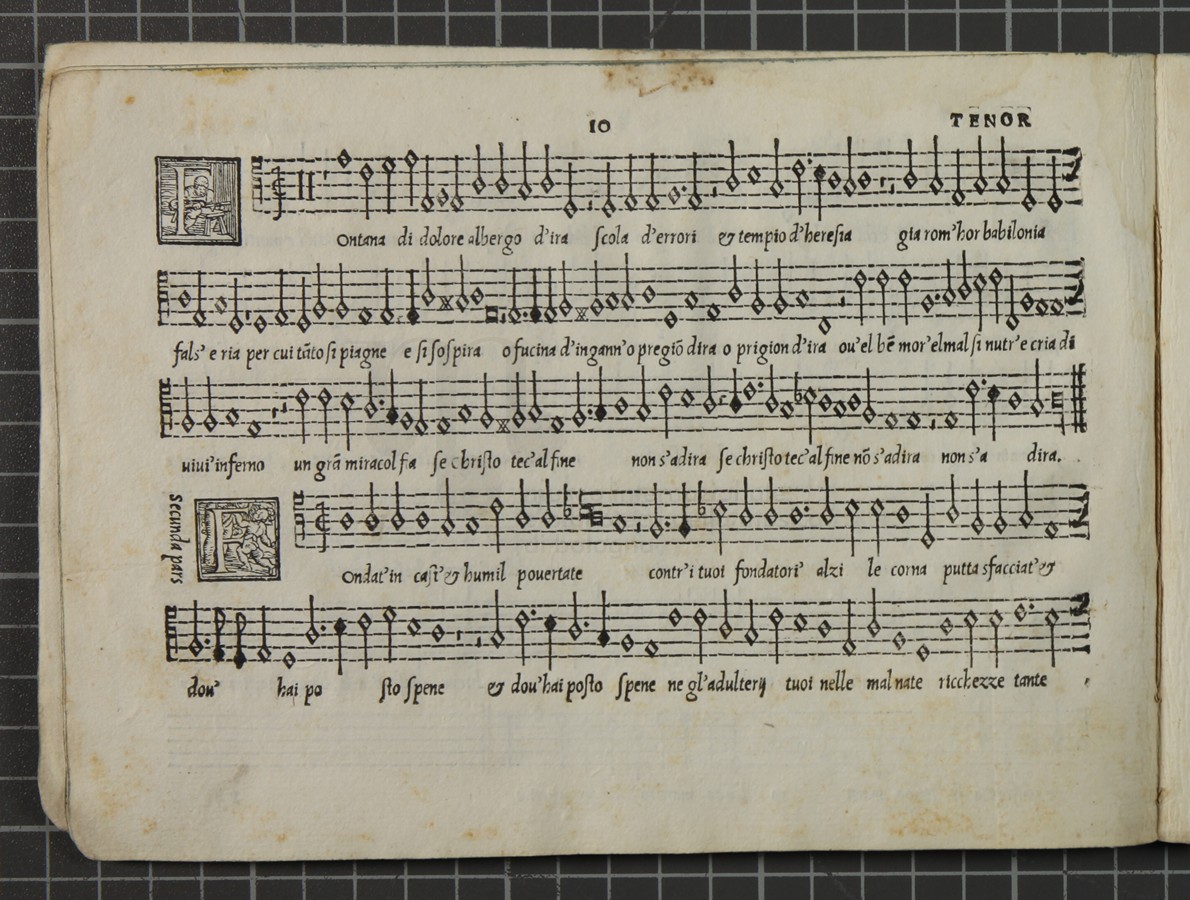 10
TENOR
Fontana di dolore albergo d'ira scola d'errori & tempio d'heresia gia rom'hor babilonia
fals' e ria per cui tãto si piagne e si sospira o fucina d'ingann'o pregiõ dira o prigion d'ira ou'el bẽ mor'el mal si nutr'e cria di
uiui'inferno un grã miracol fia se christo tec'al fine non s'adira se christo tec'al fine nõ s'adira non s'a dira.
secunda pars
Fondat'in cast'& humil pouertate contr'i tuoi fondatori' alzi le corna putta sfacciat'&
dou' hai po sto spene & dou'hai posto spene ne gl'adulterij tuoi nelle mal nate ricchezze tante